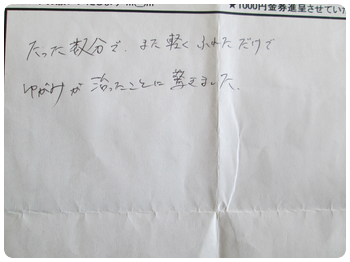 ★1000円金券進呈させていた
たった数分で、また軽くふれただけで
ゆがみが治ったことに驚きました。